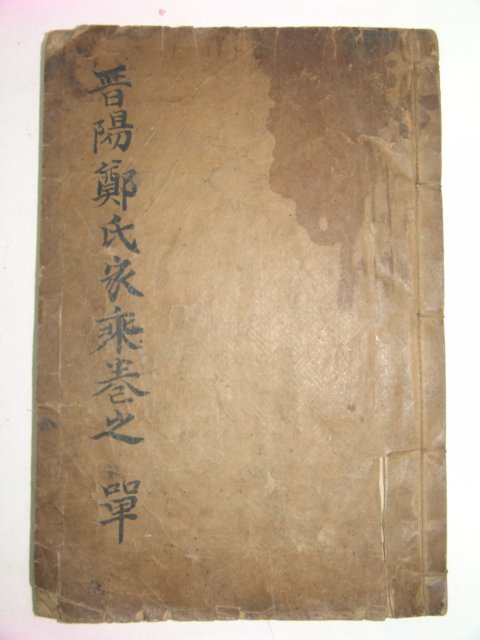 晋陽鄭氏家乘卷之 單